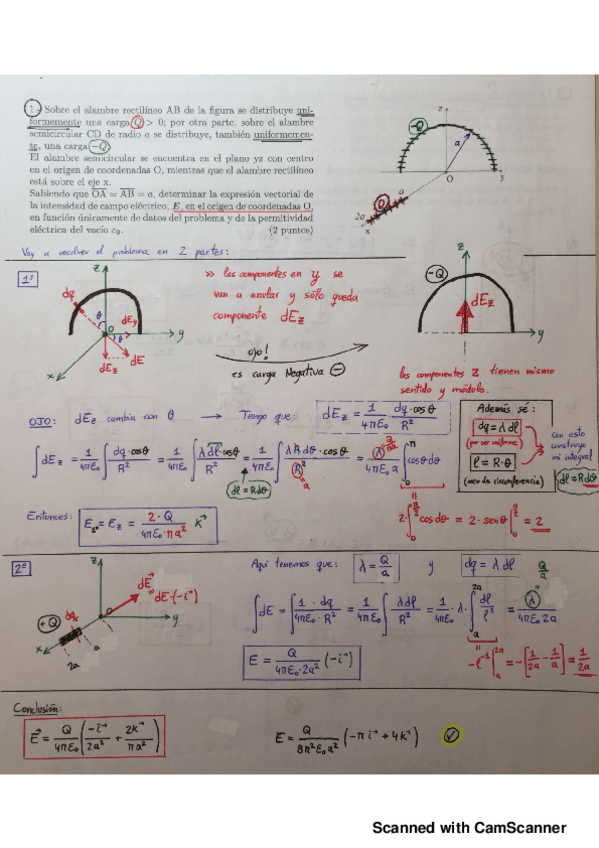 1.- Sobre el alambre rectilíneo AB de la figura se distribuye uni-
formemente una carga Q > 0; por otra parte, sobre el alambre
semicircular CD de radio a se distribuye, también uniformemen-
te, una carga -Q.
El alambre semicircular se encuentra en el plano yz con centro
en el origen de coordenadas O, mientras que el alambre rectilíneo
está sobre el eje x.
Sabiendo que OA = AB = a, determinar la expresión vectorial de
la intensidad de campo eléctrico, E, en el origen de coordenadas O,
en función únicamente de datos del problema y de la permitividad
eléctrica del vacío ε₀. (2 puntos)
z
-Q
a
O
y
Q
a
2a
x
Voy a resolver el problema en 2 partes:
1º
z
dq
θ
O
dEy
θ
y
dEz
dE
x
>> las componentes en y se
van a anular y sólo queda
componente dEz
ojo!
es carga Negativa ⊖
z
-Q
dEz
y
las componentes z tienen mismo
sentido y módulo.
OJO: dEz cambia con θ → Tengo que: dEz = 1/4πε₀ · dq·cosθ/R²
Además sé:
dq = λdl
(por ser uniforme)
l = R·θ
(arco de circunferencia)
con esto
construyo
mi integral
dl = Rdθ
∫dEz = 1/4πε₀ ∫ dq·cosθ/R² = 1/4πε₀ ∫ λdl·cosθ/R² = 1/4πε₀ ∫ λRdθ·cosθ/R² = λ/4πε₀a ∫₀^π cosθdθ
Q/πa
a
(dl = Rdθ)
2·∫₀^(π/2) cosdθ = 2·senθ |₀^(π/2) = 2
Entonces: E = Ez = 2·Q/4πε₀·πa² k⃗
2º
z
dE⃗
dE·(-i⃗)
O
+Q
dq
y
a
2a
x
Aquí tenemos que: λ = Q/a y dq = λdl
Q/a
∫dE = ∫ 1·dq/4πε₀·R² = 1/4πε₀ ∫ λdl/R² = 1/4πε₀ · λ · ∫ₐ^2a dl/l² = λ/4πε₀2a
E = Q/4πε₀·2a² (-i⃗)
-l⁻¹ |ₐ^2a = -[1/2a - 1/a] = 1/2a
Conclusión:
E⃗ = Q/4πε₀ (-i⃗/2a² + 2k⃗/πa²)
E = Q/8π²ε₀a² (-πi⃗ + 4k⃗) ✓
Scanned with CamScanner